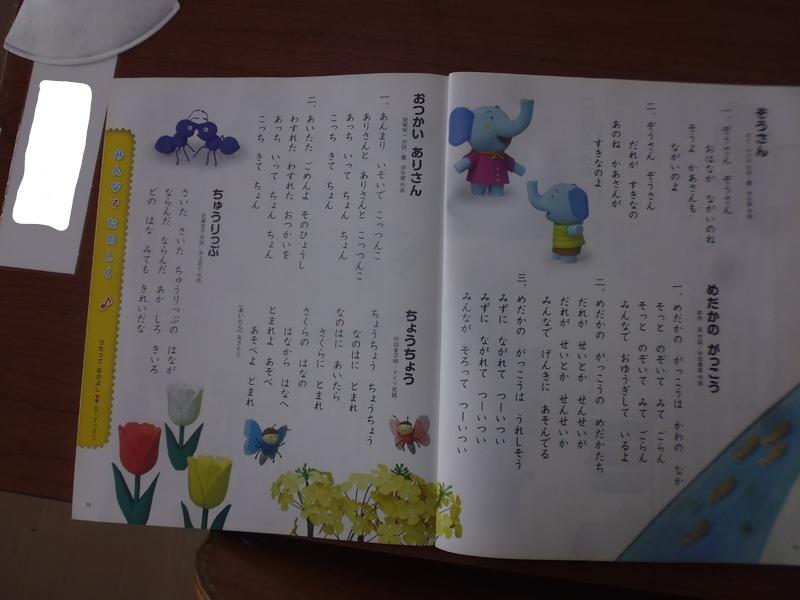 ぞうさん
一、ぞうさん ぞうさん
おはなが ながいのね
そうよ かあさんも
ながいのよ
二、ぞうさん ぞうさん
だれが すきなの
あのね かあさんが
すきなのよ
めだかの がっこう
一、めだかの がっこうは かわの なか
そっと のぞいて みて ごらん
そっと のぞいて みて ごらん
みんなで おゆうぎして いるよ
二、めだかの がっこうの めだかたち
だれが せいとか せんせいか
だれが せいとか せんせいか
みんなで げんきに あそんでる
三、めだかの がっこうは うれしそう
みずに ながれて つーいつい
みずに ながれて つーいつい
みんなが そろって つーいつい
おつかい ありさん
一、あんまり いそいで こっつんこ
ありさんと ありさんと こっつんこ
あっち いって ちょん ちょん
こっち きて ちょん
二、あいたた ごめんよ そのひょうし
わすれた わすれた おつかいを
あっち いって ちょん ちょん
こっち きて ちょん
ちょうちょう
ドイツ民謡
ちょうちょう ちょうちょう
なのはに とまれ
なのはに あいたら
さくらに とまれ
さくらの はなの
はなから はなへ
とまれよ あそべ
あそべよ とまれ
ちゅうりっぷ
さいた さいた ちゅうりっぷの はなが
ならんだ ならんだ あか しろ きいろ
どの はな みても きれいだな
みんなで たのしく